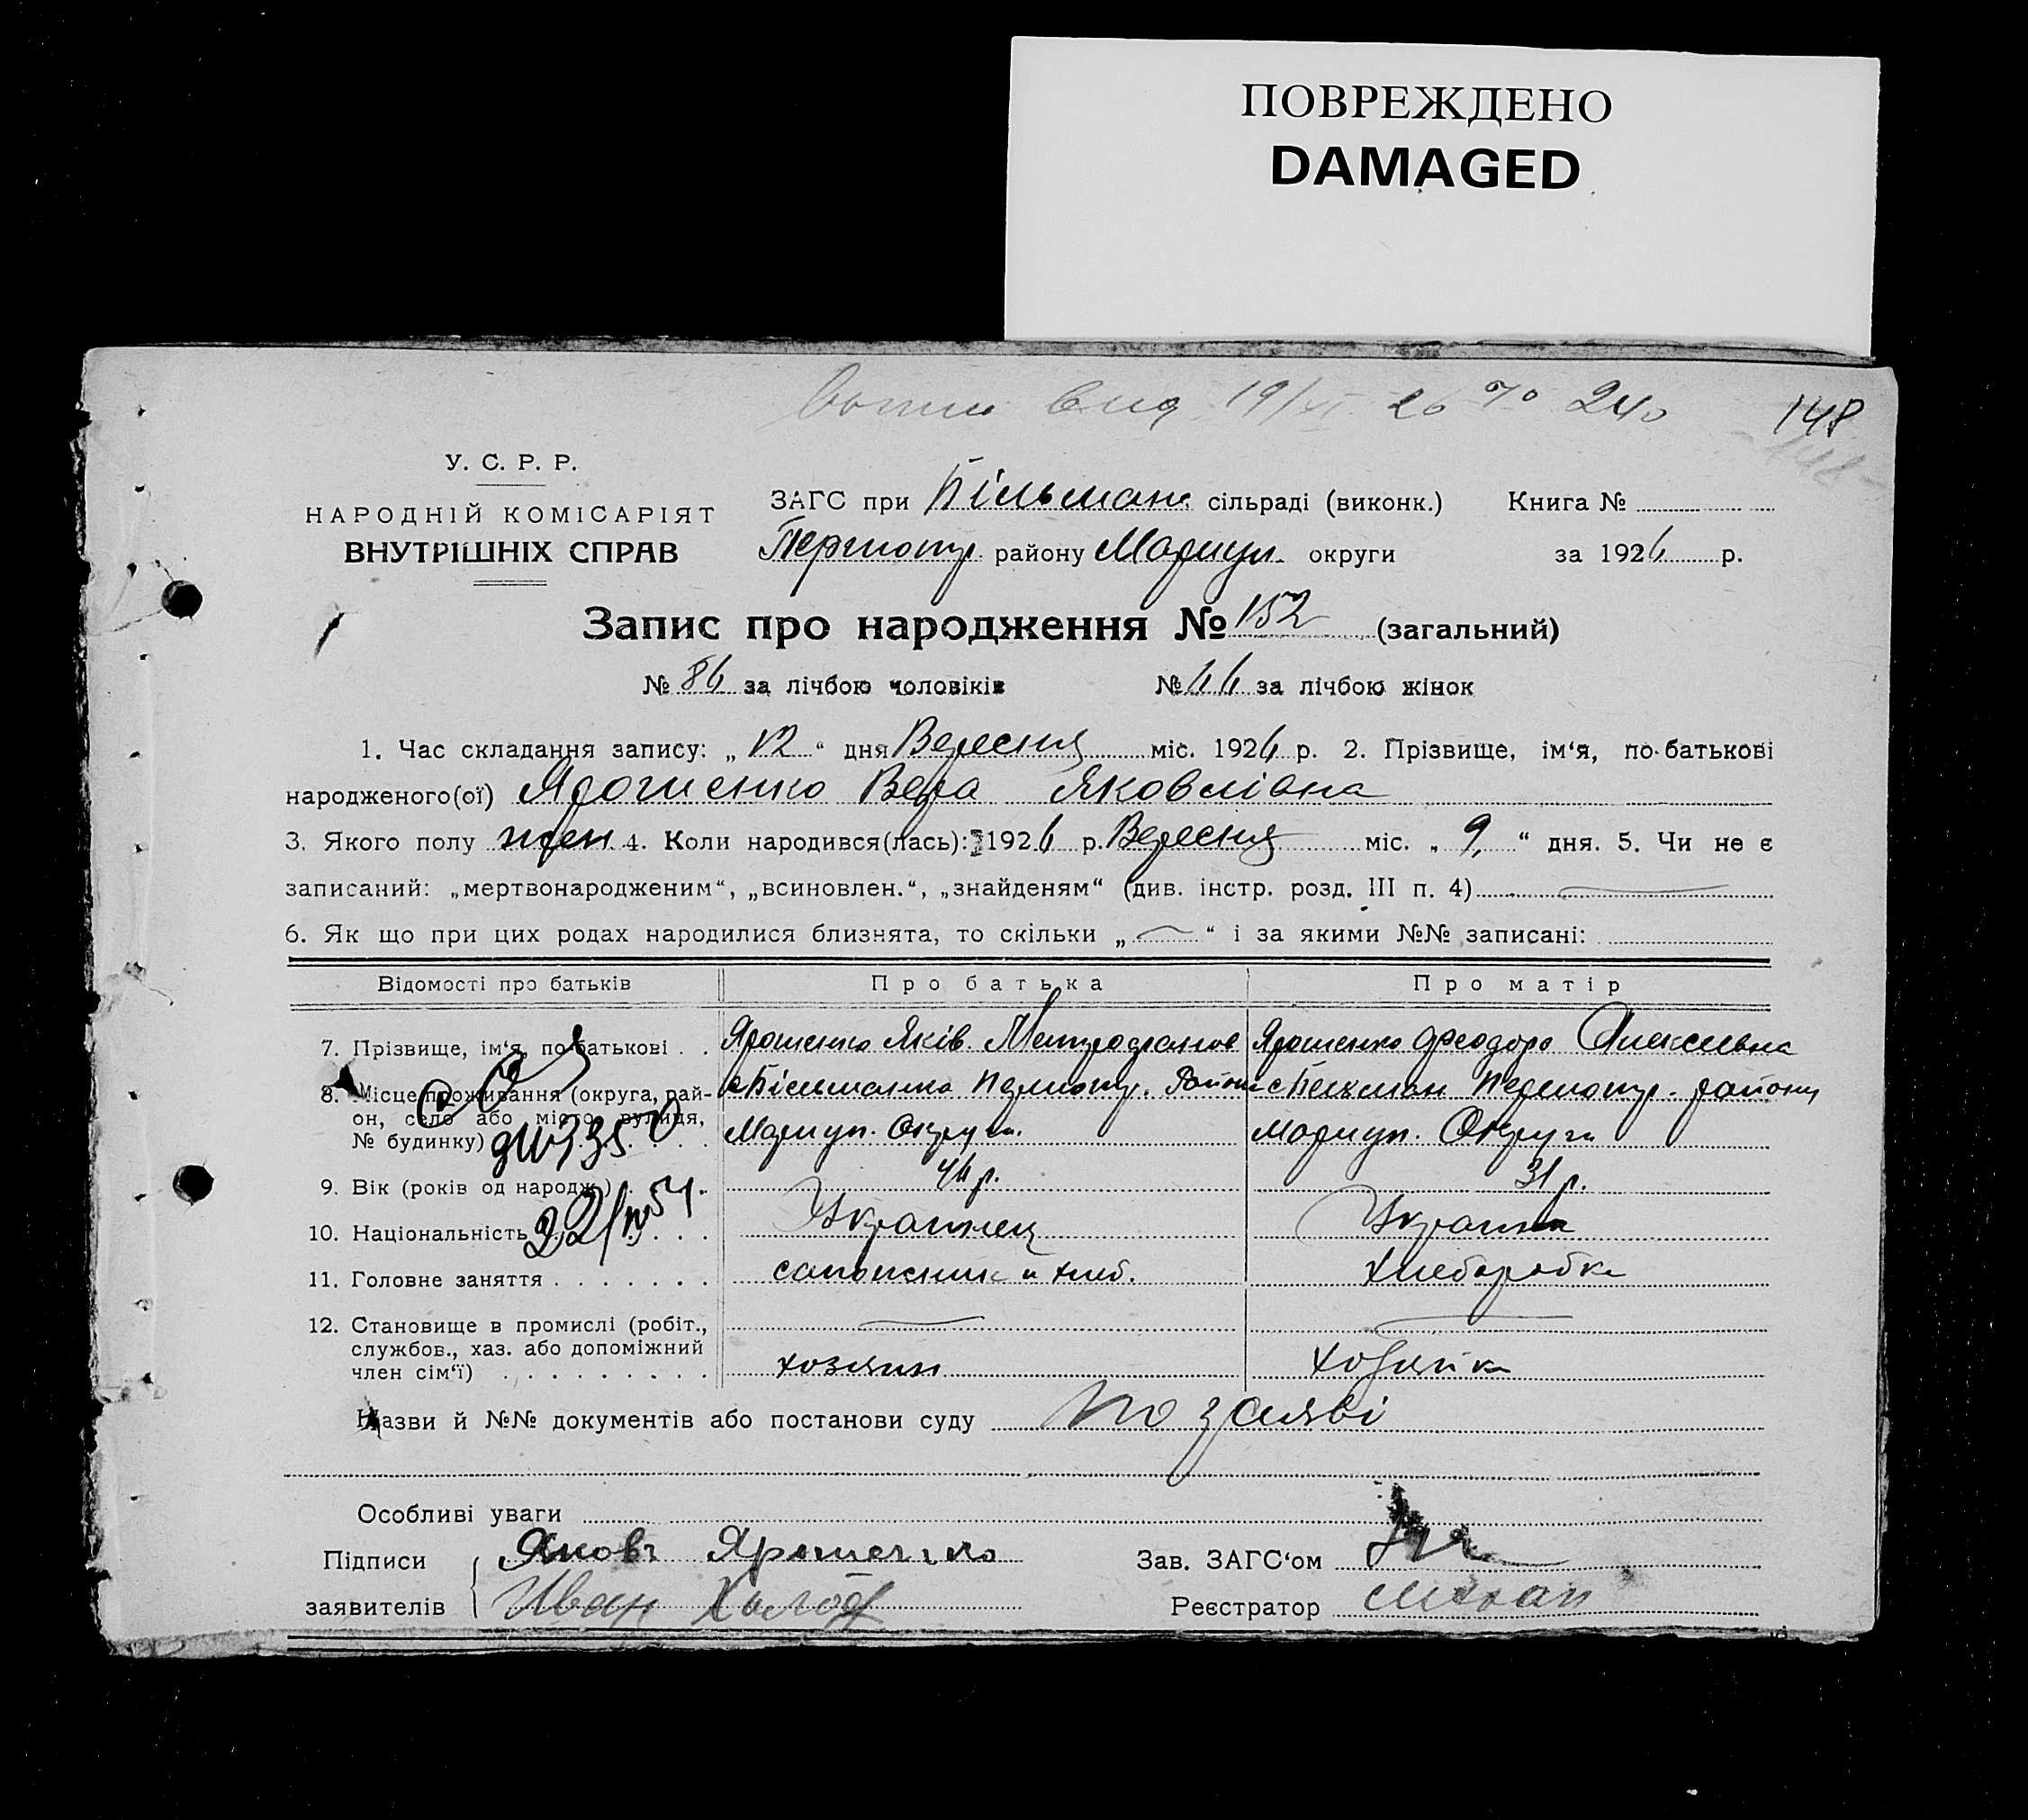 ПОВРЕЖДЕНО
DAMAGED
вид 19/XI 26 № 240 148
У. С. Р. Р.
НАРОДНІЙ КОМІСАРІЯТ
ВНУТРІШНІХ СПРАВ
ЗАГС при Більман. сільраді (виконк.) Книга №
району Мариуп. округи за 1926 р.
Запис про народження № 152 (загальний)
№ 86 за лічбою чоловіків № 66 за лічбою жінок
1. Час складання запису: „12“ дня Вересня міс. 1926 р. 2. Прізвище, ім‘я, по-батькові
народженого(ої) Ярошенко Вера Яковлівна
3. Якого полу жен 4. Коли народився(лась): 1926 р. Вересня міс. „9.“ дня. 5. Чи не є
записаний: „мертвонародженим“, „всиновлен.“, „знайденям“ (див. інстр. розд. III п. 4)
6. Як що при цих родах народилися близнята, то скільки „—“ і за якими №№ записані:
Відомості про батьків Про батька Про матір
7. Прізвище, ім‘я, по-батькові . . Ярошенко Яків Митрофанов Ярошенко Феодора Алексеевна
8. Місце проживання (округа, рай-
он, село або місто, вулиця,
№ будинку) . . . с Більманка Району с Бельман району
Мариуп. Округи Мариуп. Округи
9. Вік (років од народж.) . . . 46 р. 31 р.
10. Національність . . . . Украинец Украинка
11. Головне заняття . . . . . . . сапожник и хлеб. Хлеборобка
12. Становище в промислі (робіт.,
службов., хаз. або допоміжний
член сім‘ї) . . . . . . . . . хозяин хозяйка
Назви й №№ документів або постанови суду по заяві
Особливі уваги
Підписи Яковъ Ярошенко Зав. ЗАГС‘ом
заявителів Иван Реєстратор